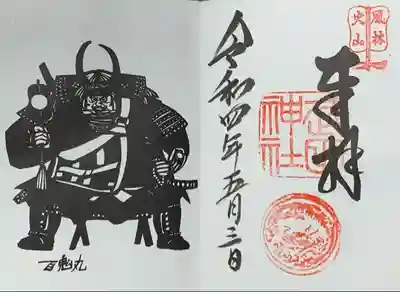 風林
火山
奉拝
武田
神社
令和四年五月三日
百鬼丸